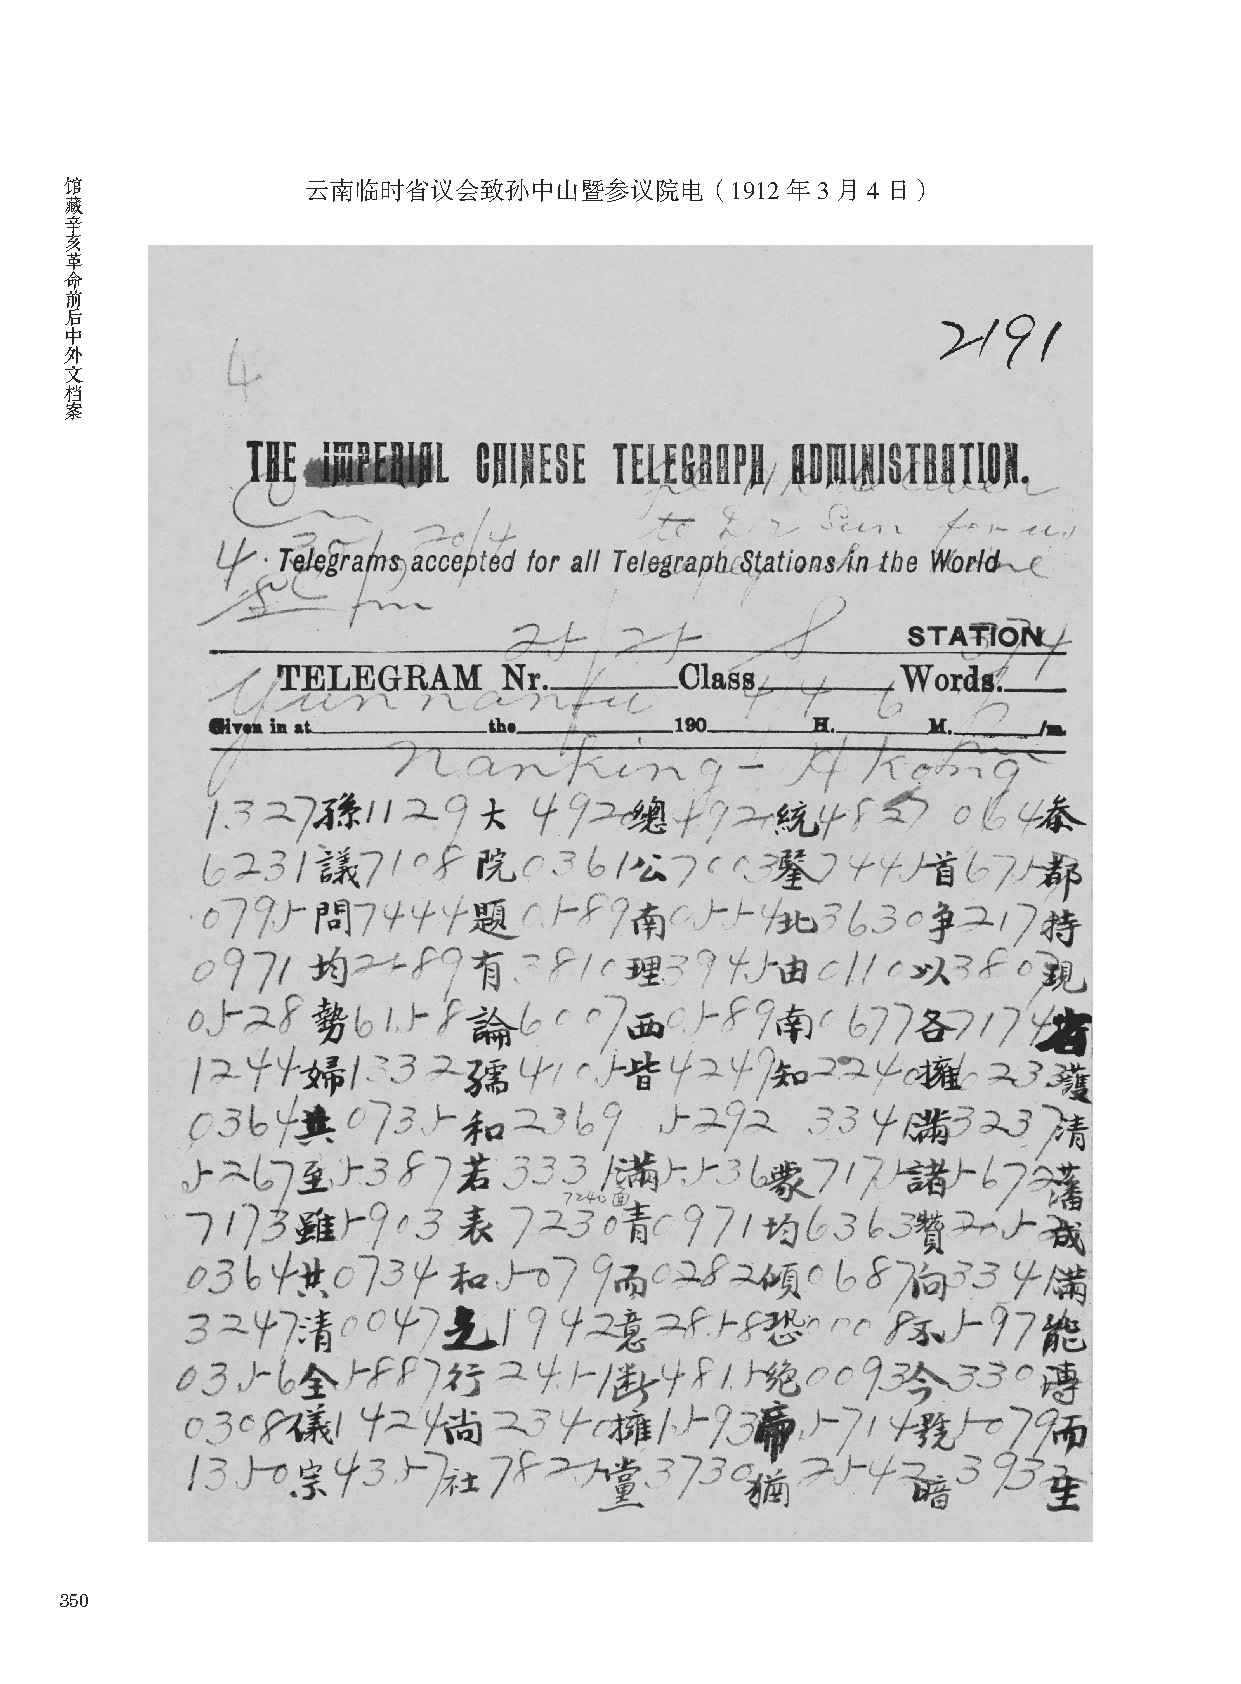 馆藏辛亥革命前后中外文档案
云南临时省议会致孙中山暨参议院电（1912 年 3 月 4 日）
2191
4
THE IMPERIAL CHINESE TELEGRAPH ADMINISTRATION.
to Dr Sun for us
4. Telegrams accepted for all Telegraph Stations in the World
25 25 8 STATION 374
TELEGRAM Nr. Class Words.
Yunnanfu 4 4 6
Given in at the 190 H. M. /m.
Nanking - H Kong
1327孫1129大 4920總492統4827 064叅
6231議7108院0361公7003鑒7445首675都
0795問7444題0589南0554北3630争217持
0971均2589有3810理3945由0110以3807現
0528勢6158論6007西0589南0677各7174省
1244婦1332孺4105皆4249知2240擁0233護
0364共0735和2369 5292 3341滿3237清
5267至5387若3331滿5536蒙7175諸5672藩
7240面
7173雖5903表7230青0971均6363贊2052成
0364共0734和5079而0282傾0687向3341滿
3247清0047之1942意2858恐0008不597能
0356全5887行2451断4815絶0093今330溥
0308儀1424尚2340擁1593帝5714號5079而
1350宗4357社7825黨3730猶2542暗3932生
350